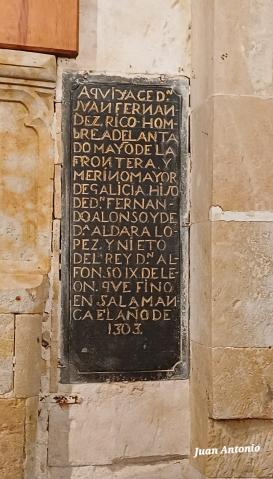 AQUI YACE D.ⁿ
JUAN FERNAN
DEZ, RICO-HOM-
bRE ADELANTA
DO MAYO DE LA
FRONTERA, Y
MERINO MAYOR
DE GALICIA, HIJO
DE D.ⁿ FERNAN-
DO ALONSO Y DE
D.ᵃ ALDARA LO-
PEZ, Y NIETO
DEL REY D.ⁿ AL-
FONSO IX DE LE-
ON. QUE FINO
EN SALAMAN-
CA EL AÑO DE
1303.
Juan Antonio